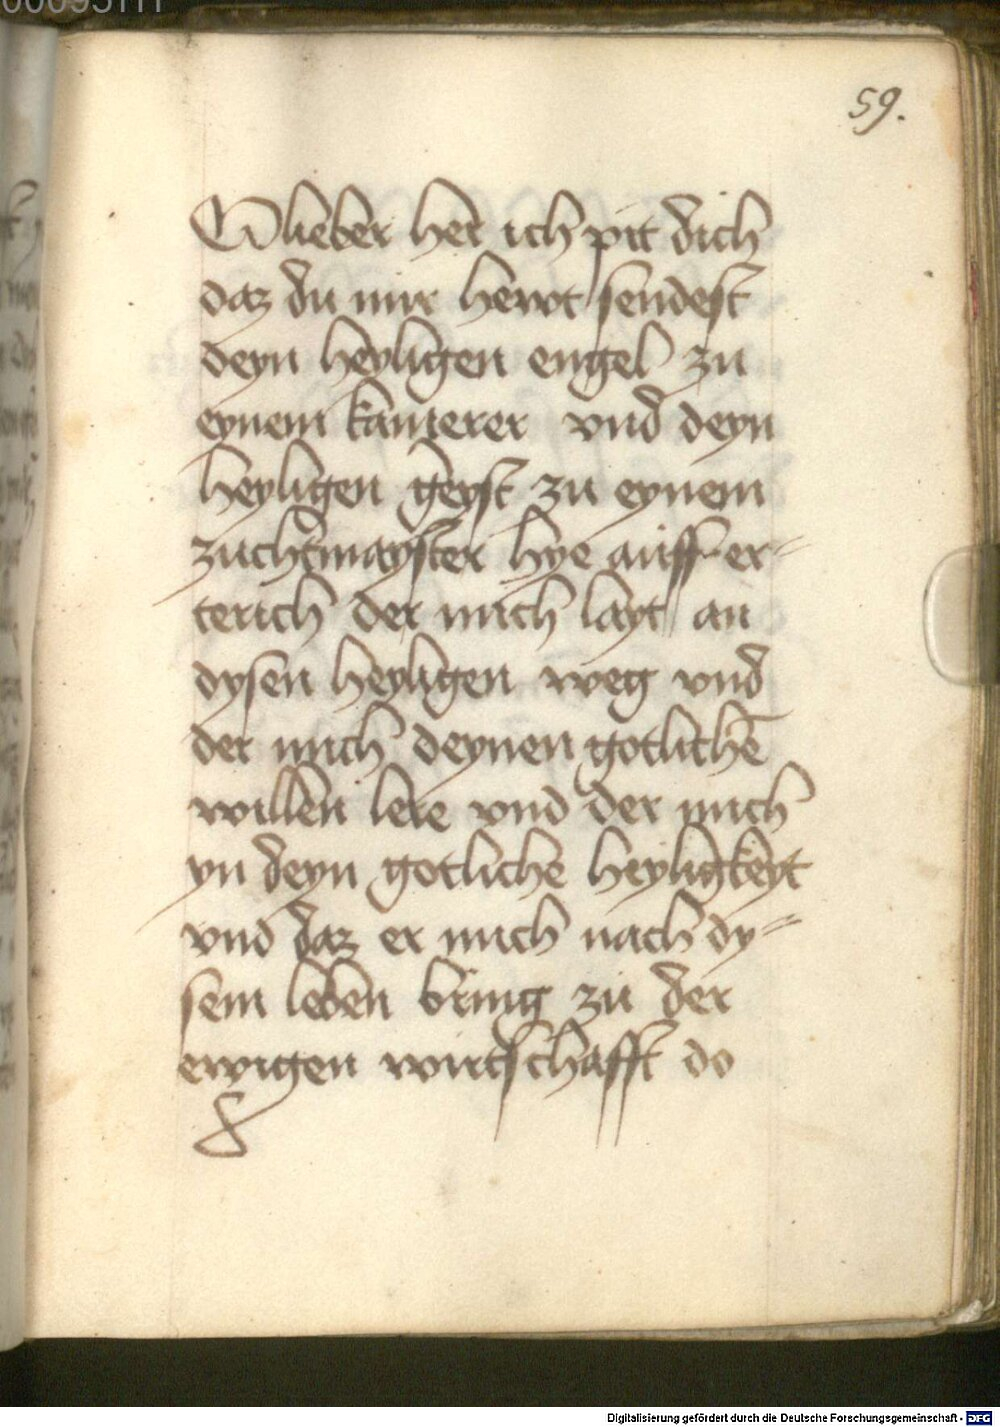 59.
O lieber her ich pit dich
daz du mir hewt sendest
deyn heyligen engel zu
eynem kamerer vnd deyn
heyligen geyst zu eynem
zuchtmayster hye auff er-
terich der mich layt an
dysen heyligen weg vnd
der mich deynen gotlichē
willen lere vnd der mich
yn deyn gotliche heyligkeyt
vnd daz er mich nach dy-
sem leben bring zu der
ewigen wirtschafft do
Digitalisierung gefördert durch die Deutsche Forschungsgemeinschaft - DFG